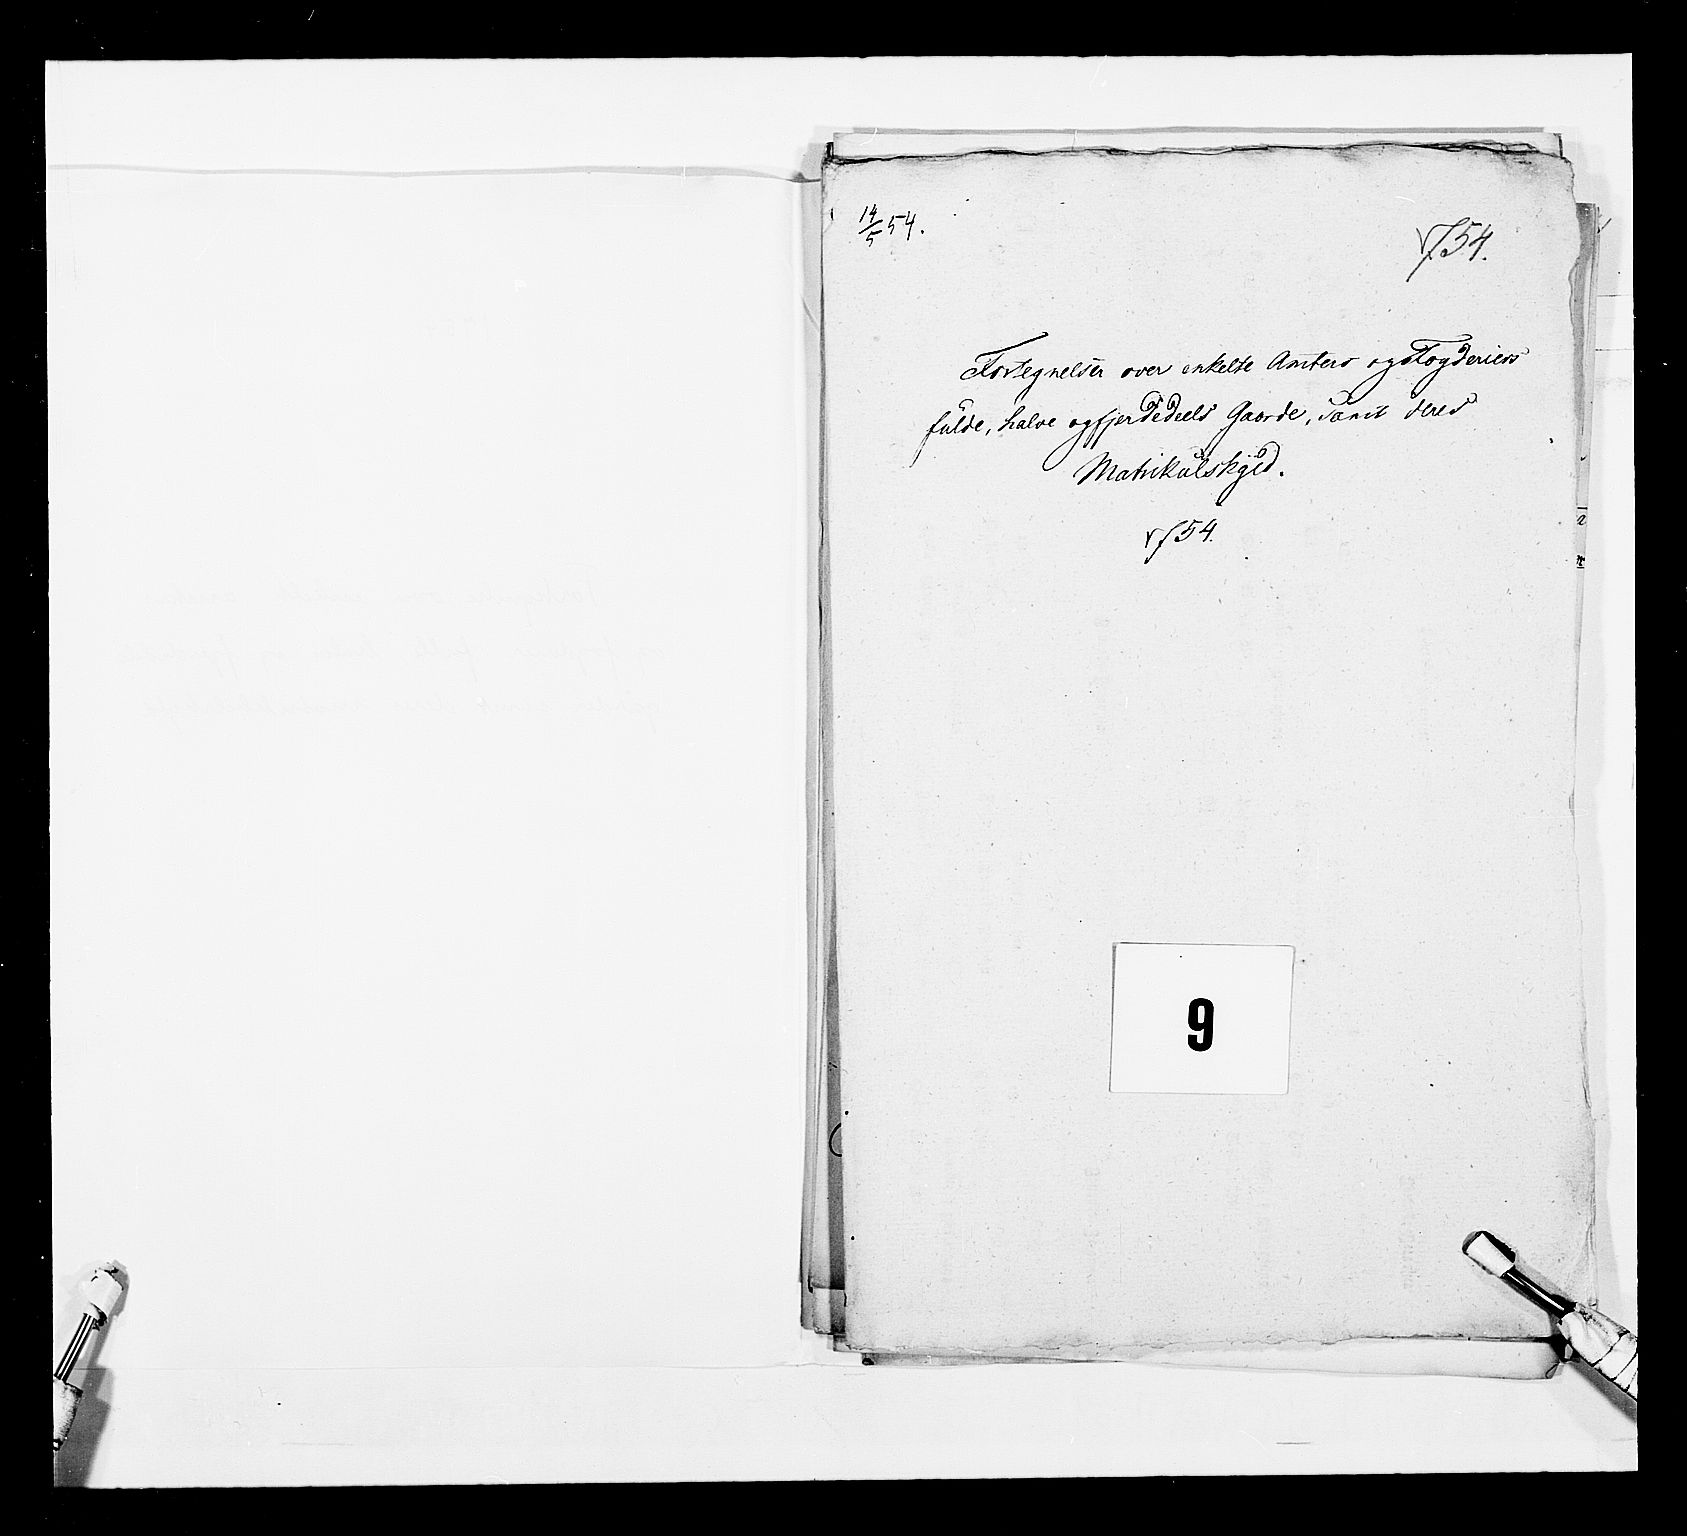 14/5 54.
1754.
Fortegnelser over enkelte Amters og Fogderiers
fulde, halve og fjerdedeels Gaarde, samt deres
Matrikulskyld.
1754.
9